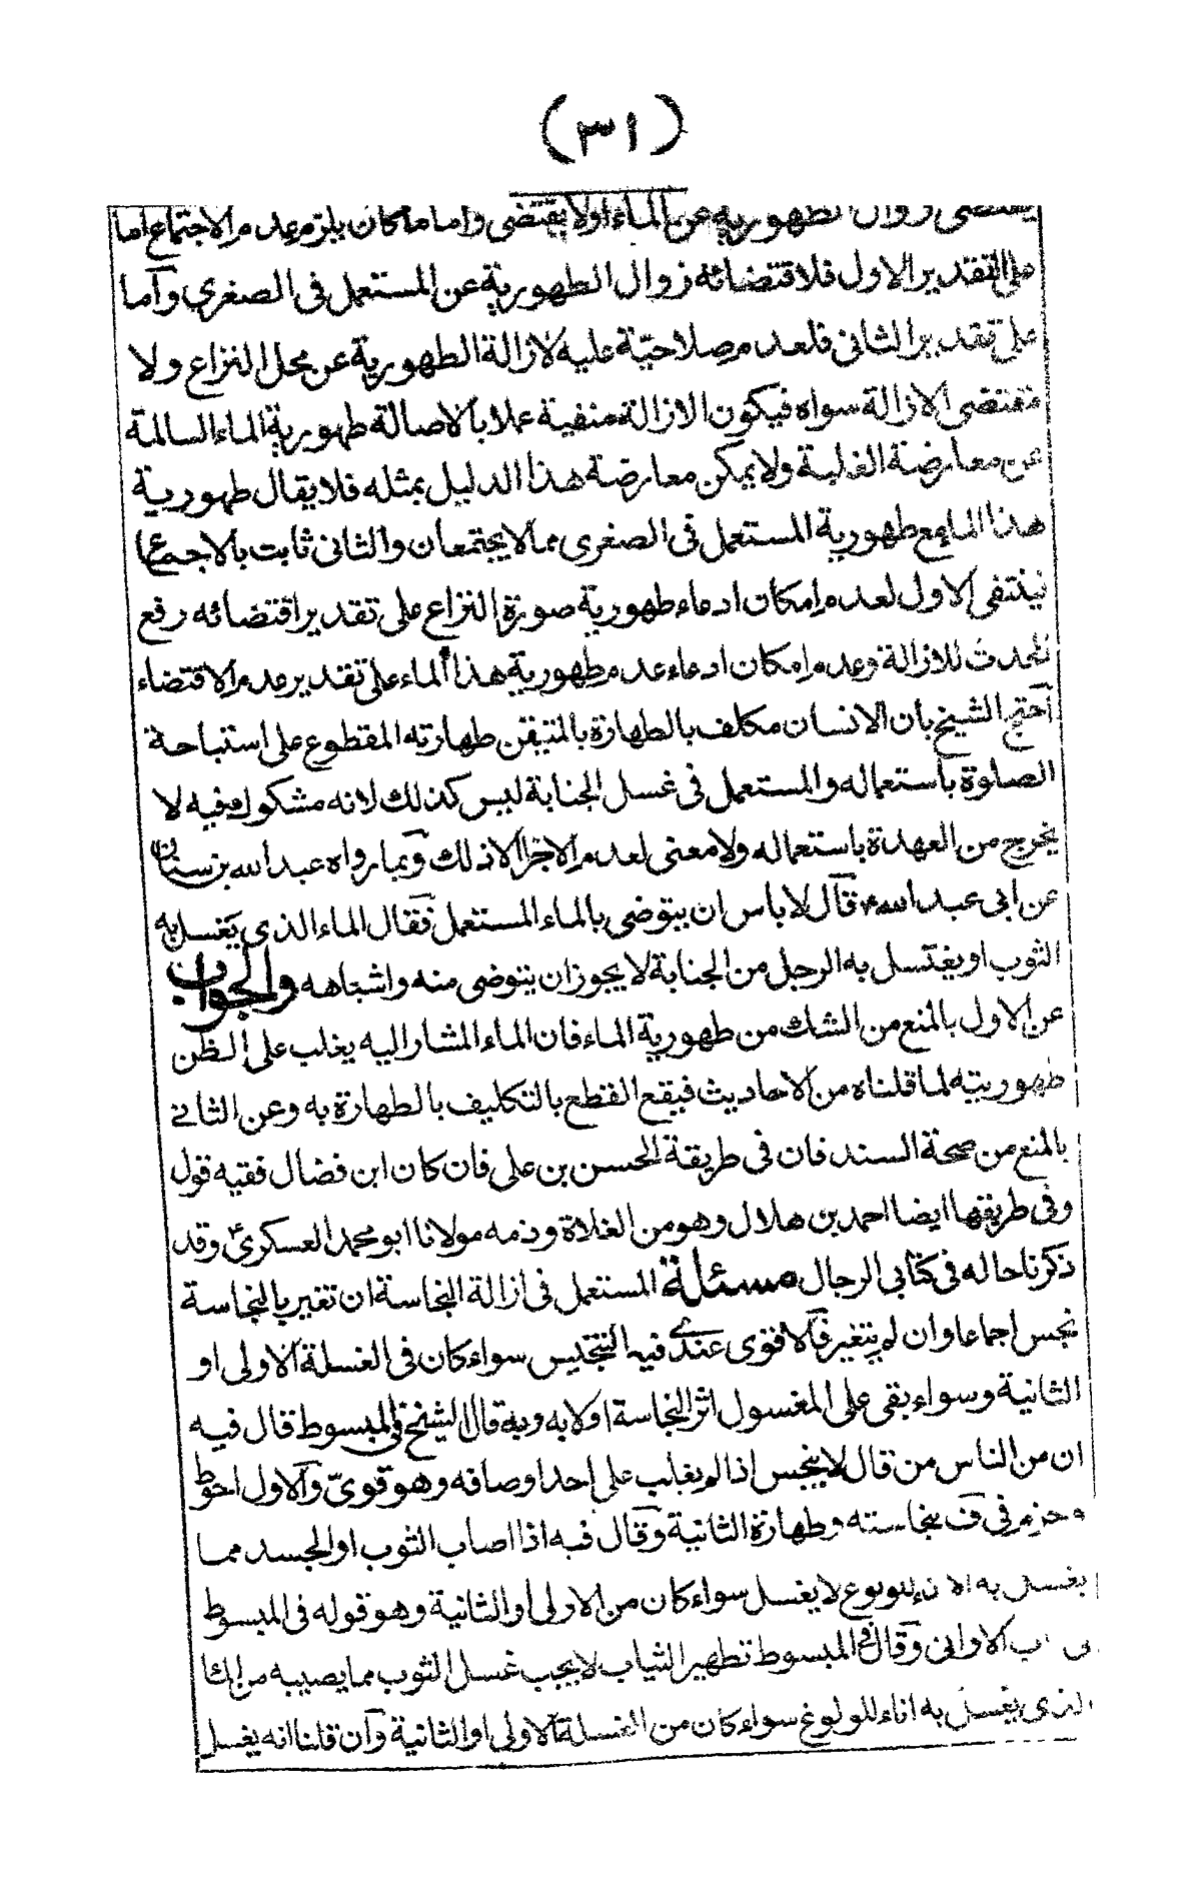 (٣١)
يقتضى زوال طهورية عن الماء اولا يقتضى واما ما كان يلزم عدم الاجتماع اما
على التقدير الاول فلاقتضائه زوال الطهورية عن المستعمل فى الصغرى وآما
على تقدير الثانى فلعدم صلاحيّة علية لازالة الطهورية عن محل النزاع ولا
مقتضى لازالة سواه فيكون الازالة منفية عملا بالاصالة طهورية الماء السالمة
عن معارضة الغلبة ولا يمكن معارضة هذا الدليل بمثله فلا يقال طهورية
هذا الماء مع طهورية المستعمل فى الصغرى مما لا يجتمعان والثانى ثابت بالاجماع
فينتفى الاول لعدم امكان ادعاء طهورية صورة النزاع على تقدير اقتضائه رفع
الحدث للازالة وعدم امكان ادعاء عدم طهورية هذا الماء على تقدير عدم الاقتضاء
آحتج الشيخ بان الانسان مكلف بالطهارة بالمتيقن طهارته المقطوع على استباحة
الصلوة باستعماله والمستعمل فى غسل الجنابة ليس كذلك لانه مشكوك فيه لا
يخرج من العهدة باستعماله ولا معنى لعدم الاجزا الا ذلك وبما رواه عبد الله بن سنان
عن ابى عبد الله ع قآل لا باس ان يتوضى بالماء المستعمل فقال الماء الذى يغسل به
الثوب او يغتسل به الرجل من الجنابة لا يجوز ان يتوضى منه واشباهه والجواب
عن الاول بالمنع من الشك من طهورية الماء فان الماء المشار اليه يغلب على الظن
طهوريته لما قلناه من الاحاديث فيقع القطع بالتكليف بالطهارة به وعن الثانى
بالمنع من صحة السند فان فى طريقة الحسن بن على فان كان ابن فضال ففيه قول
وفى طريقها ايضا احمد بن هلال وهو من الغلاة وذمه مولانا ابو محمد العسكرى ع وقد
ذكرنا حاله فى كتابى الرجال مسئلة المستعمل فى ازالة النجاسة ان تغير بالنجاسة
نجس اجماعا وان لم يتغير فآلاقوى عندى فيه التنجيس سواء كان فى الغسلة الاولى او
الثانية وسواء بقى على المغسول اثر النجاسة اولا به وبه قال الشيخ فى المبسوط قال فيه
ان من الناس من قال لا ينجس اذا لم يغلب على احد اوصافه وهو قوىّ وآلاول احوط
وجزم فى ف بنجاسته وطهارة الثانية وقآل فيه اذا اصاب الثوب او الجسد مما
يغسل به الاناء للولوغ لا يغسل سواء كان من الاولى أو الثانية وهو قوله فى المبسوط
فى باب الاوانى وقآل فى المبسوط تطهير الثياب لا يجب غسل الثوب مما يصيبه من الما
الذى يغسل به اناء للولوغ سواء كان من الغسلة آلاولى او الثانية وآن قلنا انه يغسل